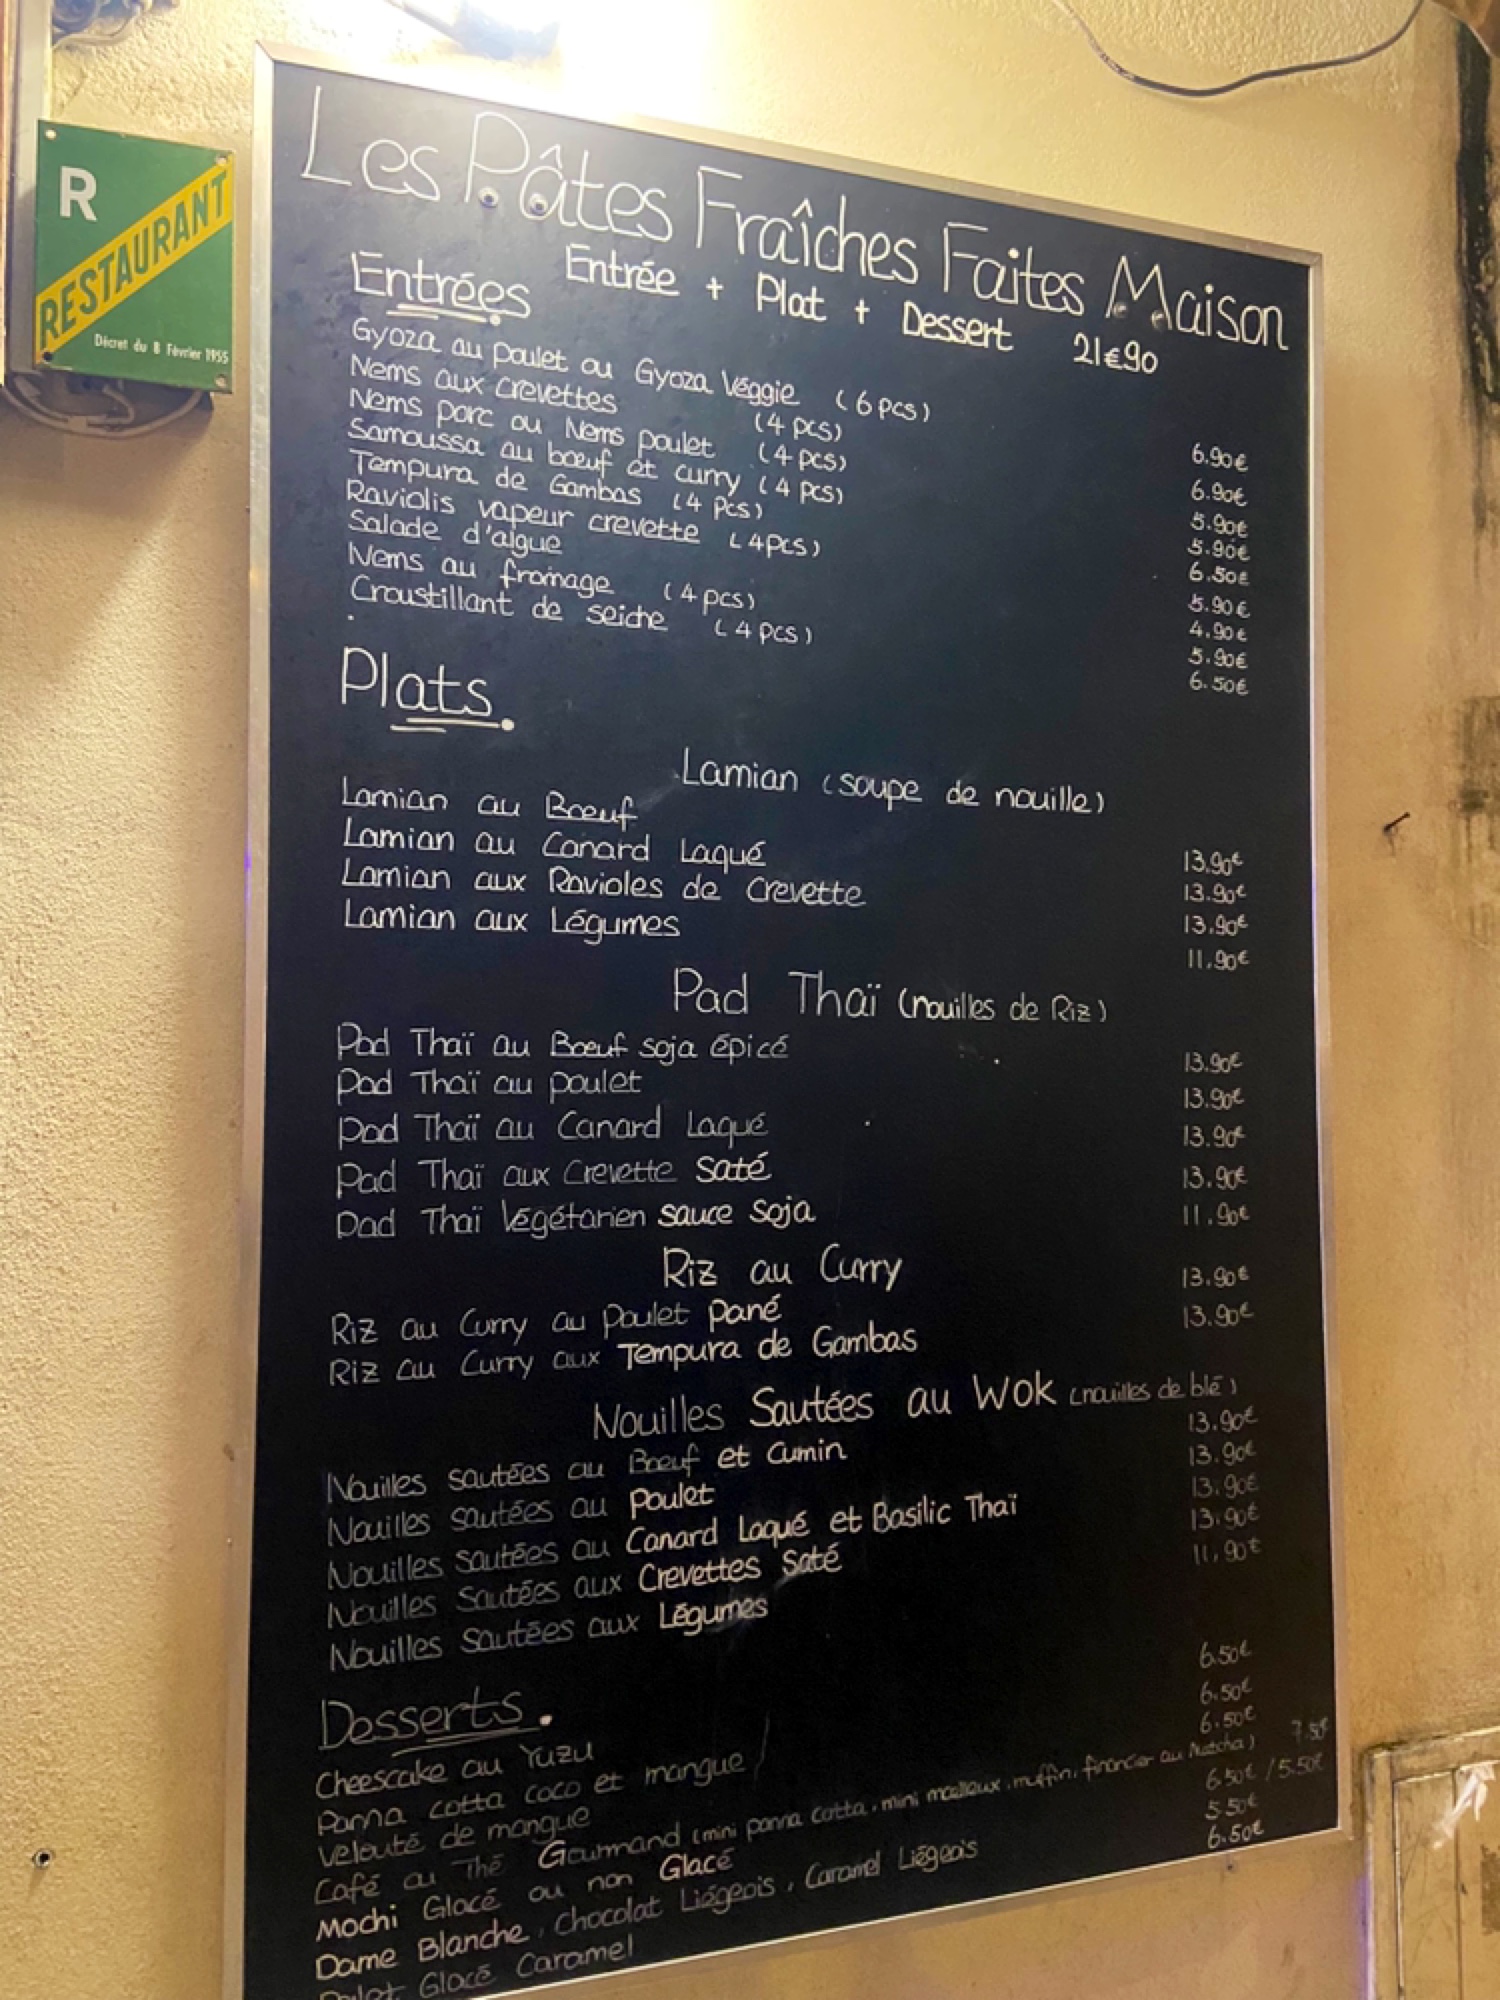 R
RESTAURANT
Décret du 8 Février 1955
Les Pâtes Fraîches Faites Maison
Entrée + Plat + Dessert 21€90
Entrées
Gyoza au poulet ou Gyoza Veggie (6 pcs) 6.90€
Nems aux crevettes (4 pcs) 6.90€
Nems porc ou Nems poulet (4 pcs) 5.90€
Samoussa au bœuf et curry (4 pcs) 5.90€
Tempura de Gambas (4 pcs) 6.50€
Raviolis vapeur crevette (4pcs) 5.90€
Salade d'algue 4.90€
Nems au fromage (4 pcs) 5.90€
Croustillant de seiche (4 pcs) 6.50€
Plats.
Lamian (soupe de nouille)
Lamian au Bœuf 13.90€
Lamian au Canard Laqué 13.90€
Lamian aux Ravioles de crevette 13.90€
Lamian aux Légumes 11.90€
Pad Thaï (nouilles de Riz)
Pad Thaï au Bœuf soja épicé 13.90€
Pad Thaï au poulet 13.90€
Pad Thaï au Canard Laqué 13.90€
Pad Thaï aux Crevette Saté 13.90€
Pad Thaï Végétarien sauce soja 11.90€
Riz au Curry
Riz au Curry au Poulet pané 13.90€
Riz au Curry aux Tempura de Gambas 13.90€
Nouilles Sautées au Wok (nouilles de blé)
Nouilles sautées au Bœuf et cumin 13.90€
Nouilles sautées au poulet 13.90€
Nouilles sautées au Canard Laqué et Basilic Thaï 13.90€
Nouilles Sautées aux Crevettes Saté 13.90€
Nouilles Sautées aux Légumes 11.90€
Desserts.
Cheescake au Yuzu 6.50€
Panna cotta coco et mangue 6.50€
Velouté de mangue 6.50€
Café ou Thé Gourmand (mini panna cotta, mini moelleux, muffin, financier au Matcha) 7.50€
Mochi Glacé ou non Glacé 6.50€ / 5.50€
Dame Blanche, Chocolat Liégeois, Caramel Liégeois 5.50€
Glacé Caramel 6.50€